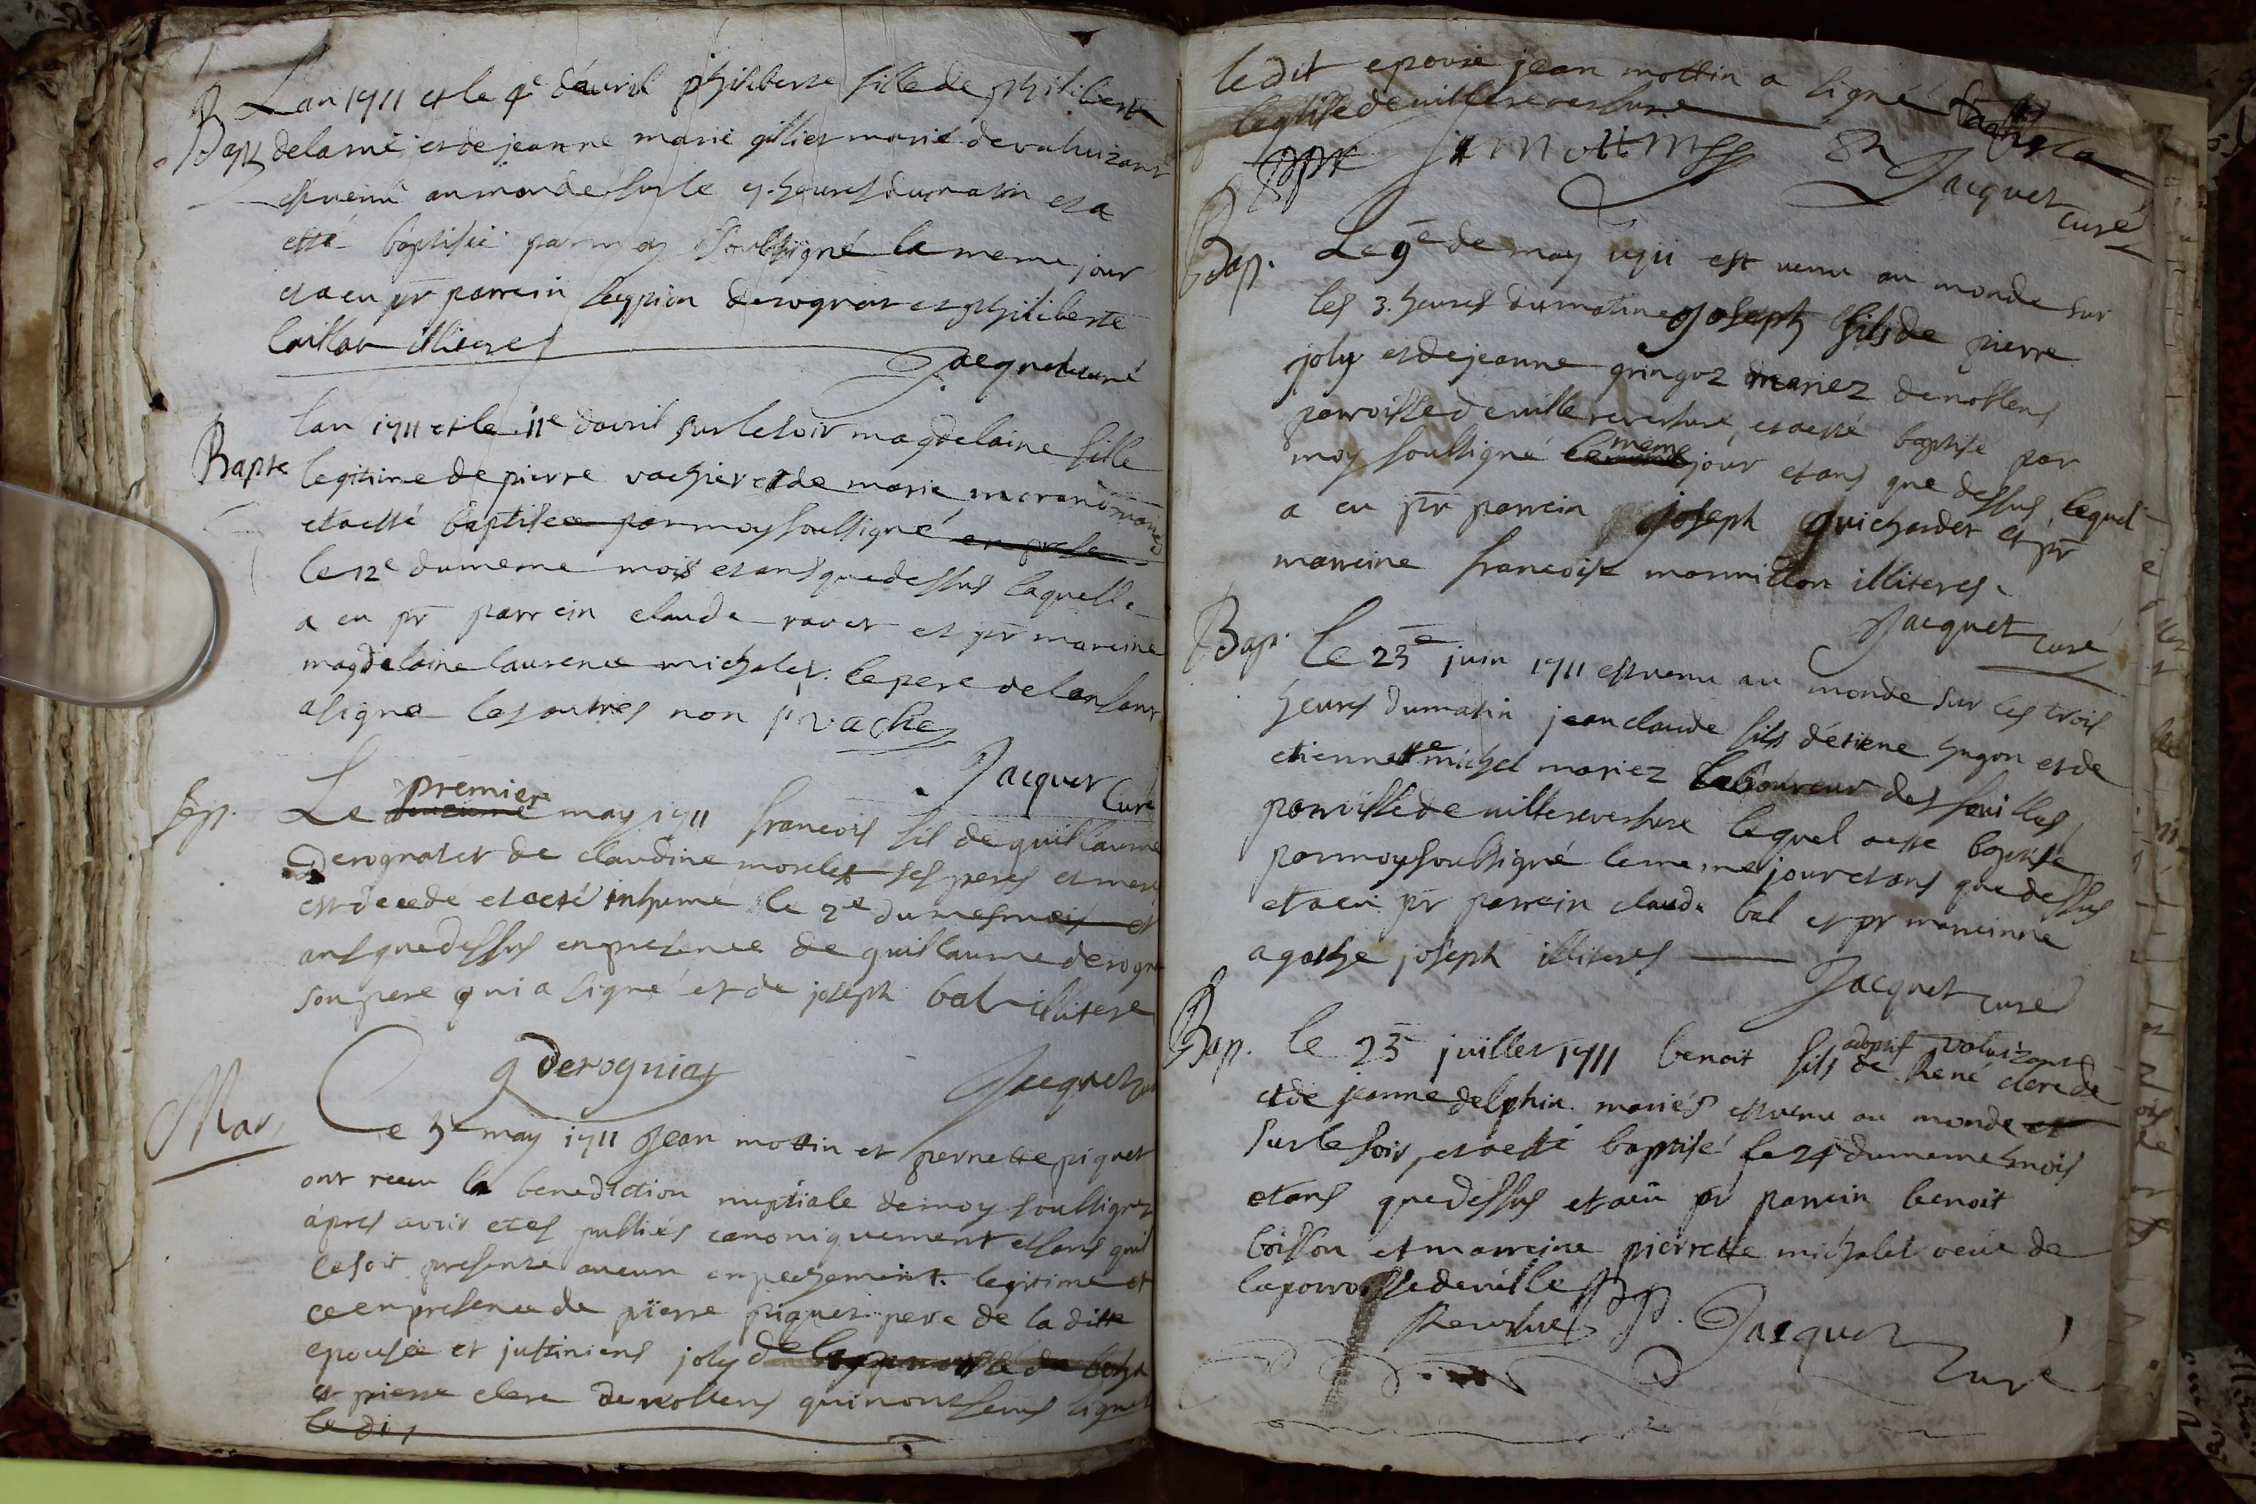 Bapt
Lan 1711 et le 4e d'avril philiberte fille de philibert
delarue et de jeanne marie gillier marié de valuisant
est venu au monde sur le 9. heures du matin et a
esté baptisée par moy soubsigné la meme jour
et a eu pr parrein derognat et philiberte
illiteres
Jacquet curé
Bapte
lan 1711 et le 11e davril sur le soir magdelaine fille
legitime de pierre vachier et de marie morand mariés
et a esté baptisee par moy soubsigné en prese
le 12e du meme mois et ans que dessus laquelle
a eu pr parrein claude ravet et pr mareine
magdelaine laurence michalet. le pere de lenfant
a signe les autres non p vache
Jacquet curé
Sep.
Le premier may 1711 francois fil de guillaume
Derognat et de claudine morelet ses peres et mere
est decedé et a eté inhumé le 2e du mesme mois et
ans que dessus en presence de guillaume derogna
son pere qui a signé et de joseph bal illitere
g derogniat
Jacquet curé
Mar.
Le 5e may 1711 Jean mottin et pernette piquet
ont receu la benediction nuptiale de moy soubsigné
apres avoir etes publiés canoniquement et sans quil
ce soit presenté aucun enpechement legitime et
ce en presence de pierre piquet pere de la ditte
epousée et justiniens joly de
et pierre clerc de nollens qui nont seus signer
le dit
le dit epousé jean mottin a signé
leglise de villereversure
j mottin
Jacquet
curé
Bap.
Le 9e de may 1711 est venu au monde sur
les 3. heures du matin joseph fils de pierre
joly et de jeanne gringoz mariez de nollens
parroisse de villereversure, et a esté baptise par
moy soubsigné le meme jour et ans que dessus, lequel
a eu pr parrein joseph guichardet et pr
marreine francoise marmillon illiteres.
Jacquet curé
Bap.
le 23e juin 1711 est venu au monde sur les trois
heures du matin jean claude fils d'étiene hugon et de
etiennette michel mariez laboureur des feuilles
parroisse de villereversure lequel a esté baptisé
par moy soubsigné le meme jour et ans que dessus
et a eu pr parrein claude bal et pr marreinne
agathe joseph illiteres
Jacquet curé
Bap.
le 23e juillet 1711 benoit fils adoptif de René clerc de valuisant
et de jeanne delphin mariés est venu au monde et
sur le soir, et a esté baptisé le 24 du meme mois
et ans que dessus et a eu pr parrein benoit
loison et marreine pierrette michalet veue de
la parroisse de ville
Reversure
Jacquet
curé